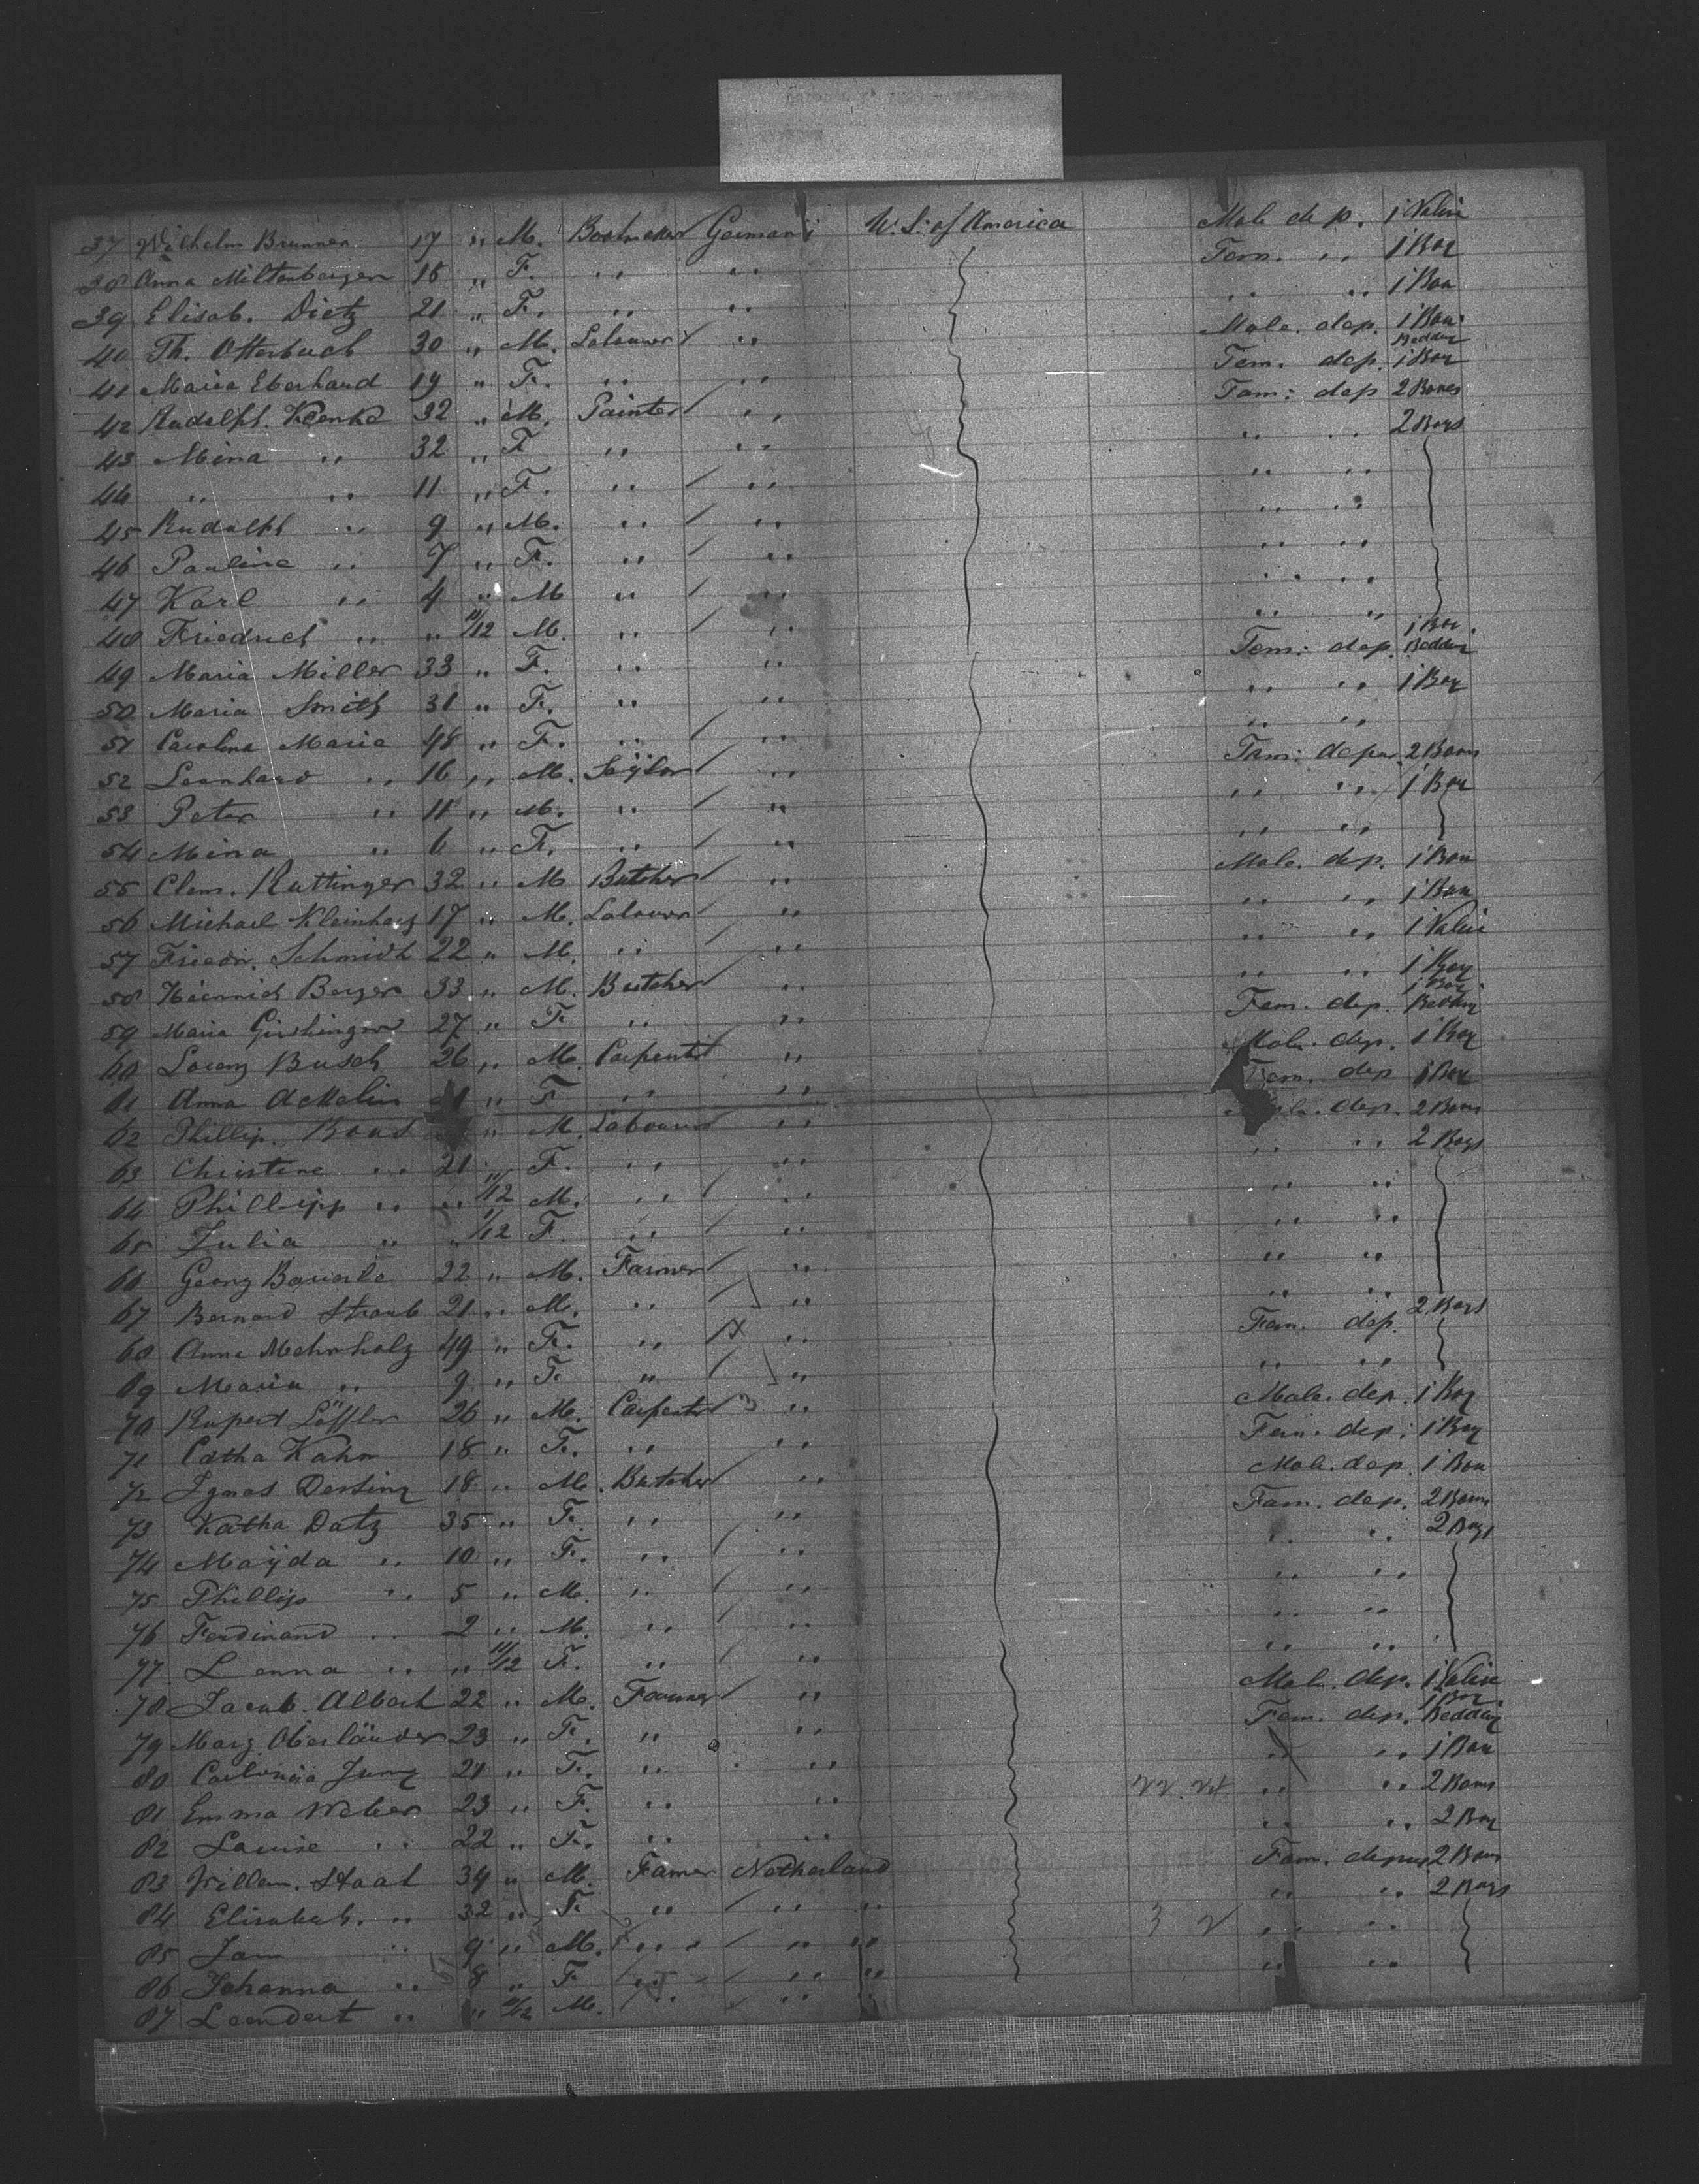 37 Wilhelm Brunner 17 " M. Bootmaker Germanÿ U. S. of America Male dep. 1 Valise
38 Anna Miltenberger 18 " F. " " Fem. " 1 Box
39 Elisab. Dietz 21 " F. " " " " 1 Box
40 Th. Otterbach 30 " M. Labourer " Male. dep. 1 Box Bedding
41 Maria Eberhard 19 " F. " " Fem. dep. 1 Box
42 Rudolph. 32 " M. Painter " Fam: dep 2 Boxes
43 Mina " 32 " F " " " " 2 Bags
44 " " 11 " F. " " " "
45 Rudolph " 9 " M. " " " "
46 Pauline " 7 " F. " " " "
47 Karl " 4 " M " " " "
48 Friedrich " " 11/12 M. " " " "
49 Maria Miller 33 " F. " " Fem: dep. 1 Box Bedding
50 Maria Smith 31 " F. " " " " 1 Box
51 Carolina Marie 48 " F. " " " "
52 Leonhard " 16 " M. " Fam: depar. 2 Boxes
53 Peter " 11 " M. " " " " 1 Box
54 Mina " 6 " F. " " " "
55 Clem. Ruttinger 32 " M Butcher " Male. dep. 1 Box
56 Michael Kleinhenz 17 " M. Labourer " " " 1 Box
57 Friedr. Schmidt 22 " M. " " " " 1 Valise
58 Heinrich Berger 33 " M. Butcher " " " 1 Bag
59 Maria 27 " F " " Fem. dep. 1 Box Bedding
60 Lorenz Busch 26 " M. Carpenter " Male. dep. 1 Bag
61 Anna " F " " Fem. dep 1 Box
62 Phillip. " M. Labourer " dep. 2 Boxes
63 Christine " 21 F. " " " " 2 Bags
64 Phillipp " " 11/12 M. " " " "
65 Julia " " 1/12 F. " " " "
66 Georg Bauerle 22 " M. Farmer " " "
67 Bernard Straub 21 " M. " " " "
68 Anna Mehrholz 49 " F. " " Fem. dep. 2 Bags
69 Maria " 9 " F. " " " "
70 Rupert Löffler 26 " M. Carpenter " Male. dep. 1 Bag
71 Catha Kahn 18 " F. " " Fem. dep: 1 Bag
72 Ignas 18 " M. Butcher " Male. dep. 1 Box
73 Katha Datz 35 " F. " " Fam. dep. 2 Boxes
74 Maÿda " 10 " F. " " " " 2 Bags
75 Phillip " 5 " M. " " " "
76 Ferdinand " 2 " M. " " " "
77 Lenna " " 11/12 F. " " " "
78 Jacob Albert 22 " M. Farmer " Male. dep. 1 Valise
79 Marg. Oberländer 23 " F. " " Fem. dep. 1 Box Bedding
80 Jung 21 " F. " " " " 1 Box
81 Emma Weber 23 " F. " " " " 2 Boxes
82 Louise " 22 " F. " " " " 2 Bag
83 Willem. Staal 34 " M. Farmer Netherland Fam. depar. 2 Boxes
84 Elisabeth. " 32 " F " " " " 2 Bags
85 Jan " 9 " M. " " " 3 2 " "
86 Johanna " 8 " F " " " " "
87 Leendert " " 11/12 M. " " "